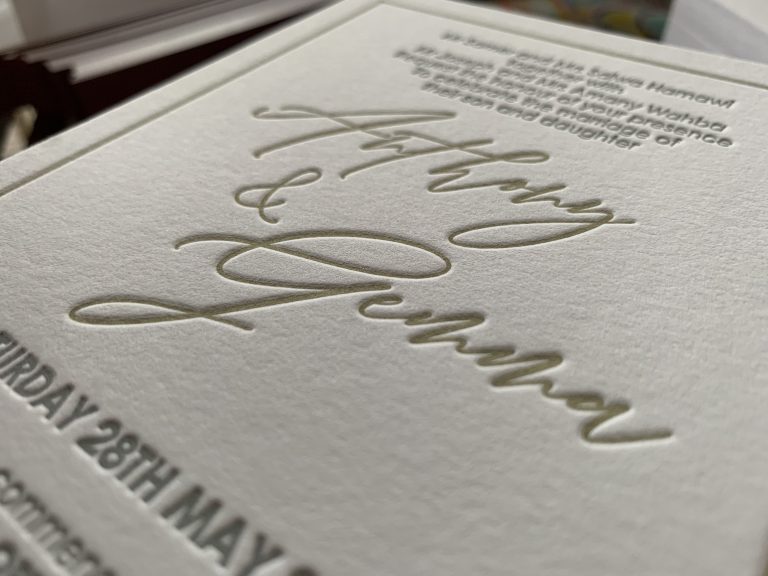 and Mrs Salwa Hamawi
together with
and Mrs Amany Wahba
request the honour of your presence
to celebrate the marriage of
their son and daughter
Anthony
&
Gemma
SATURDAY 28TH MAY